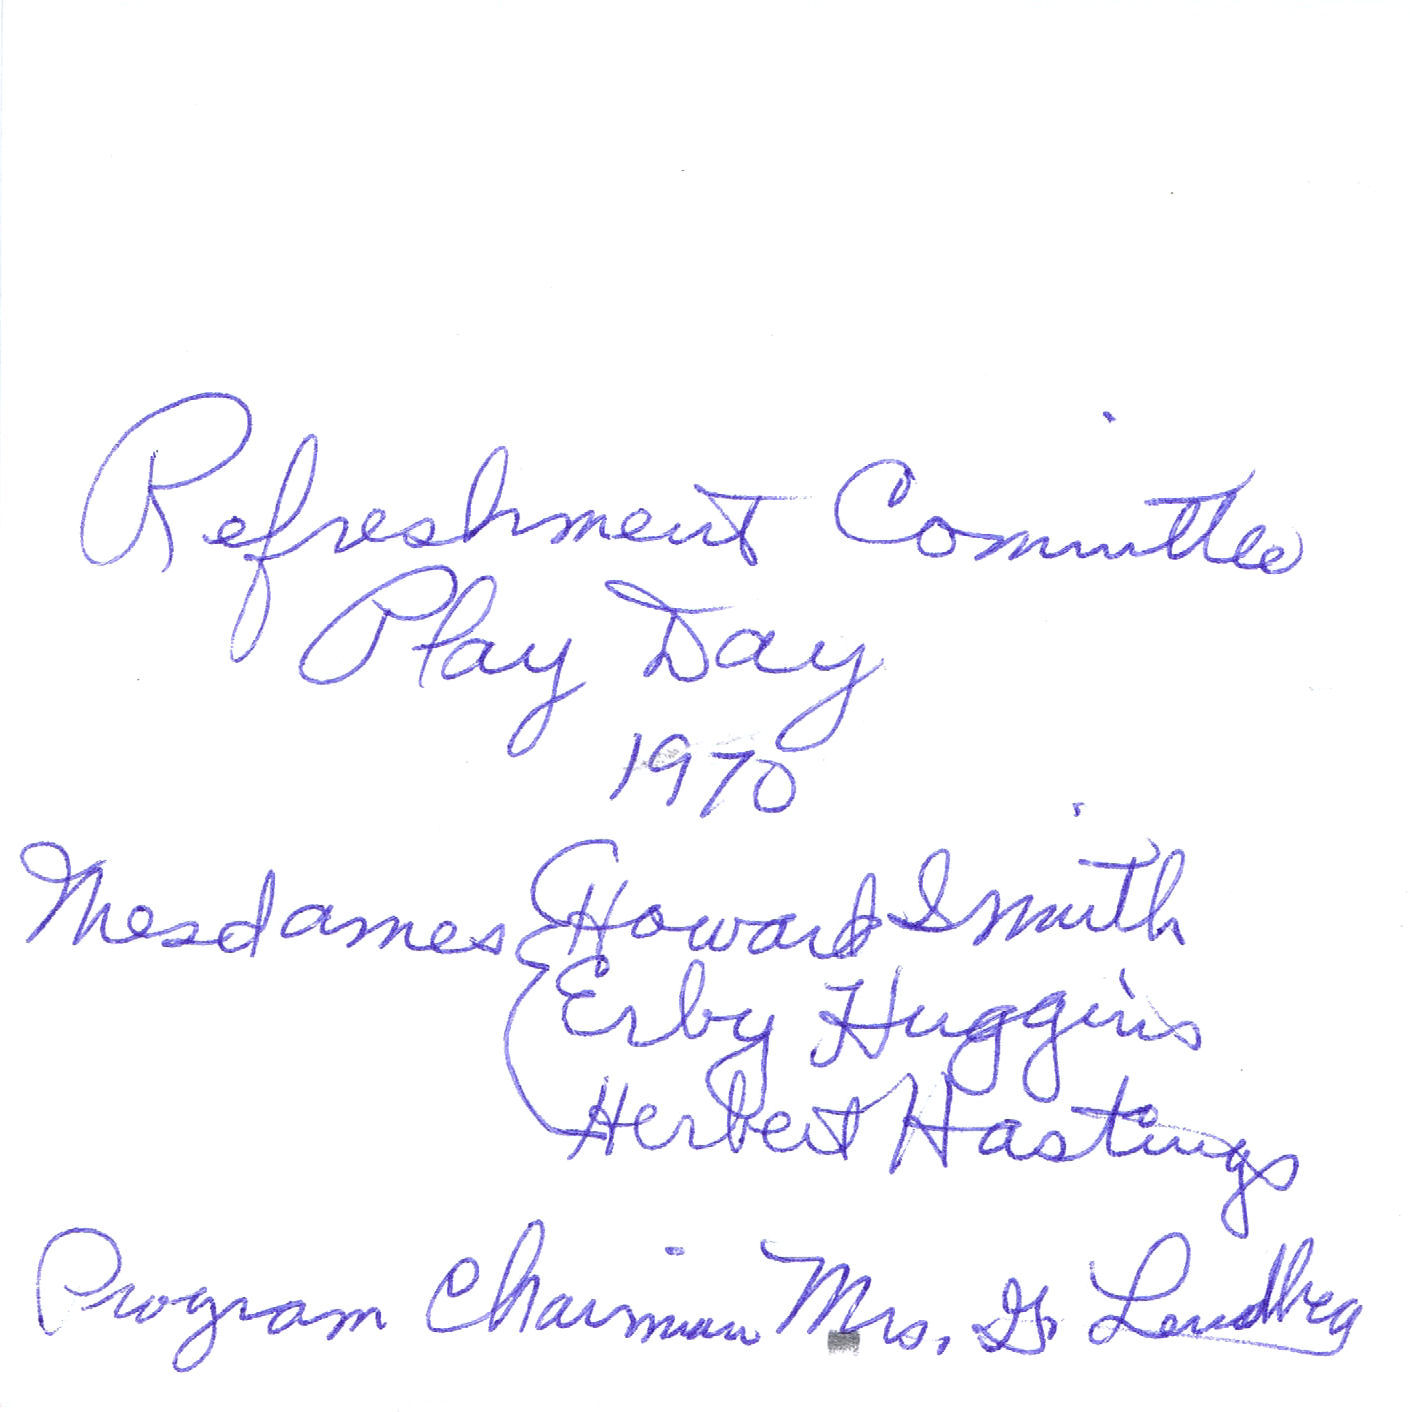 Refreshment Committee
Play Day
1970
Mesdames { Howard Smith
Erby Huggins
Herbert Hastings
Program Chairman Mrs. G.